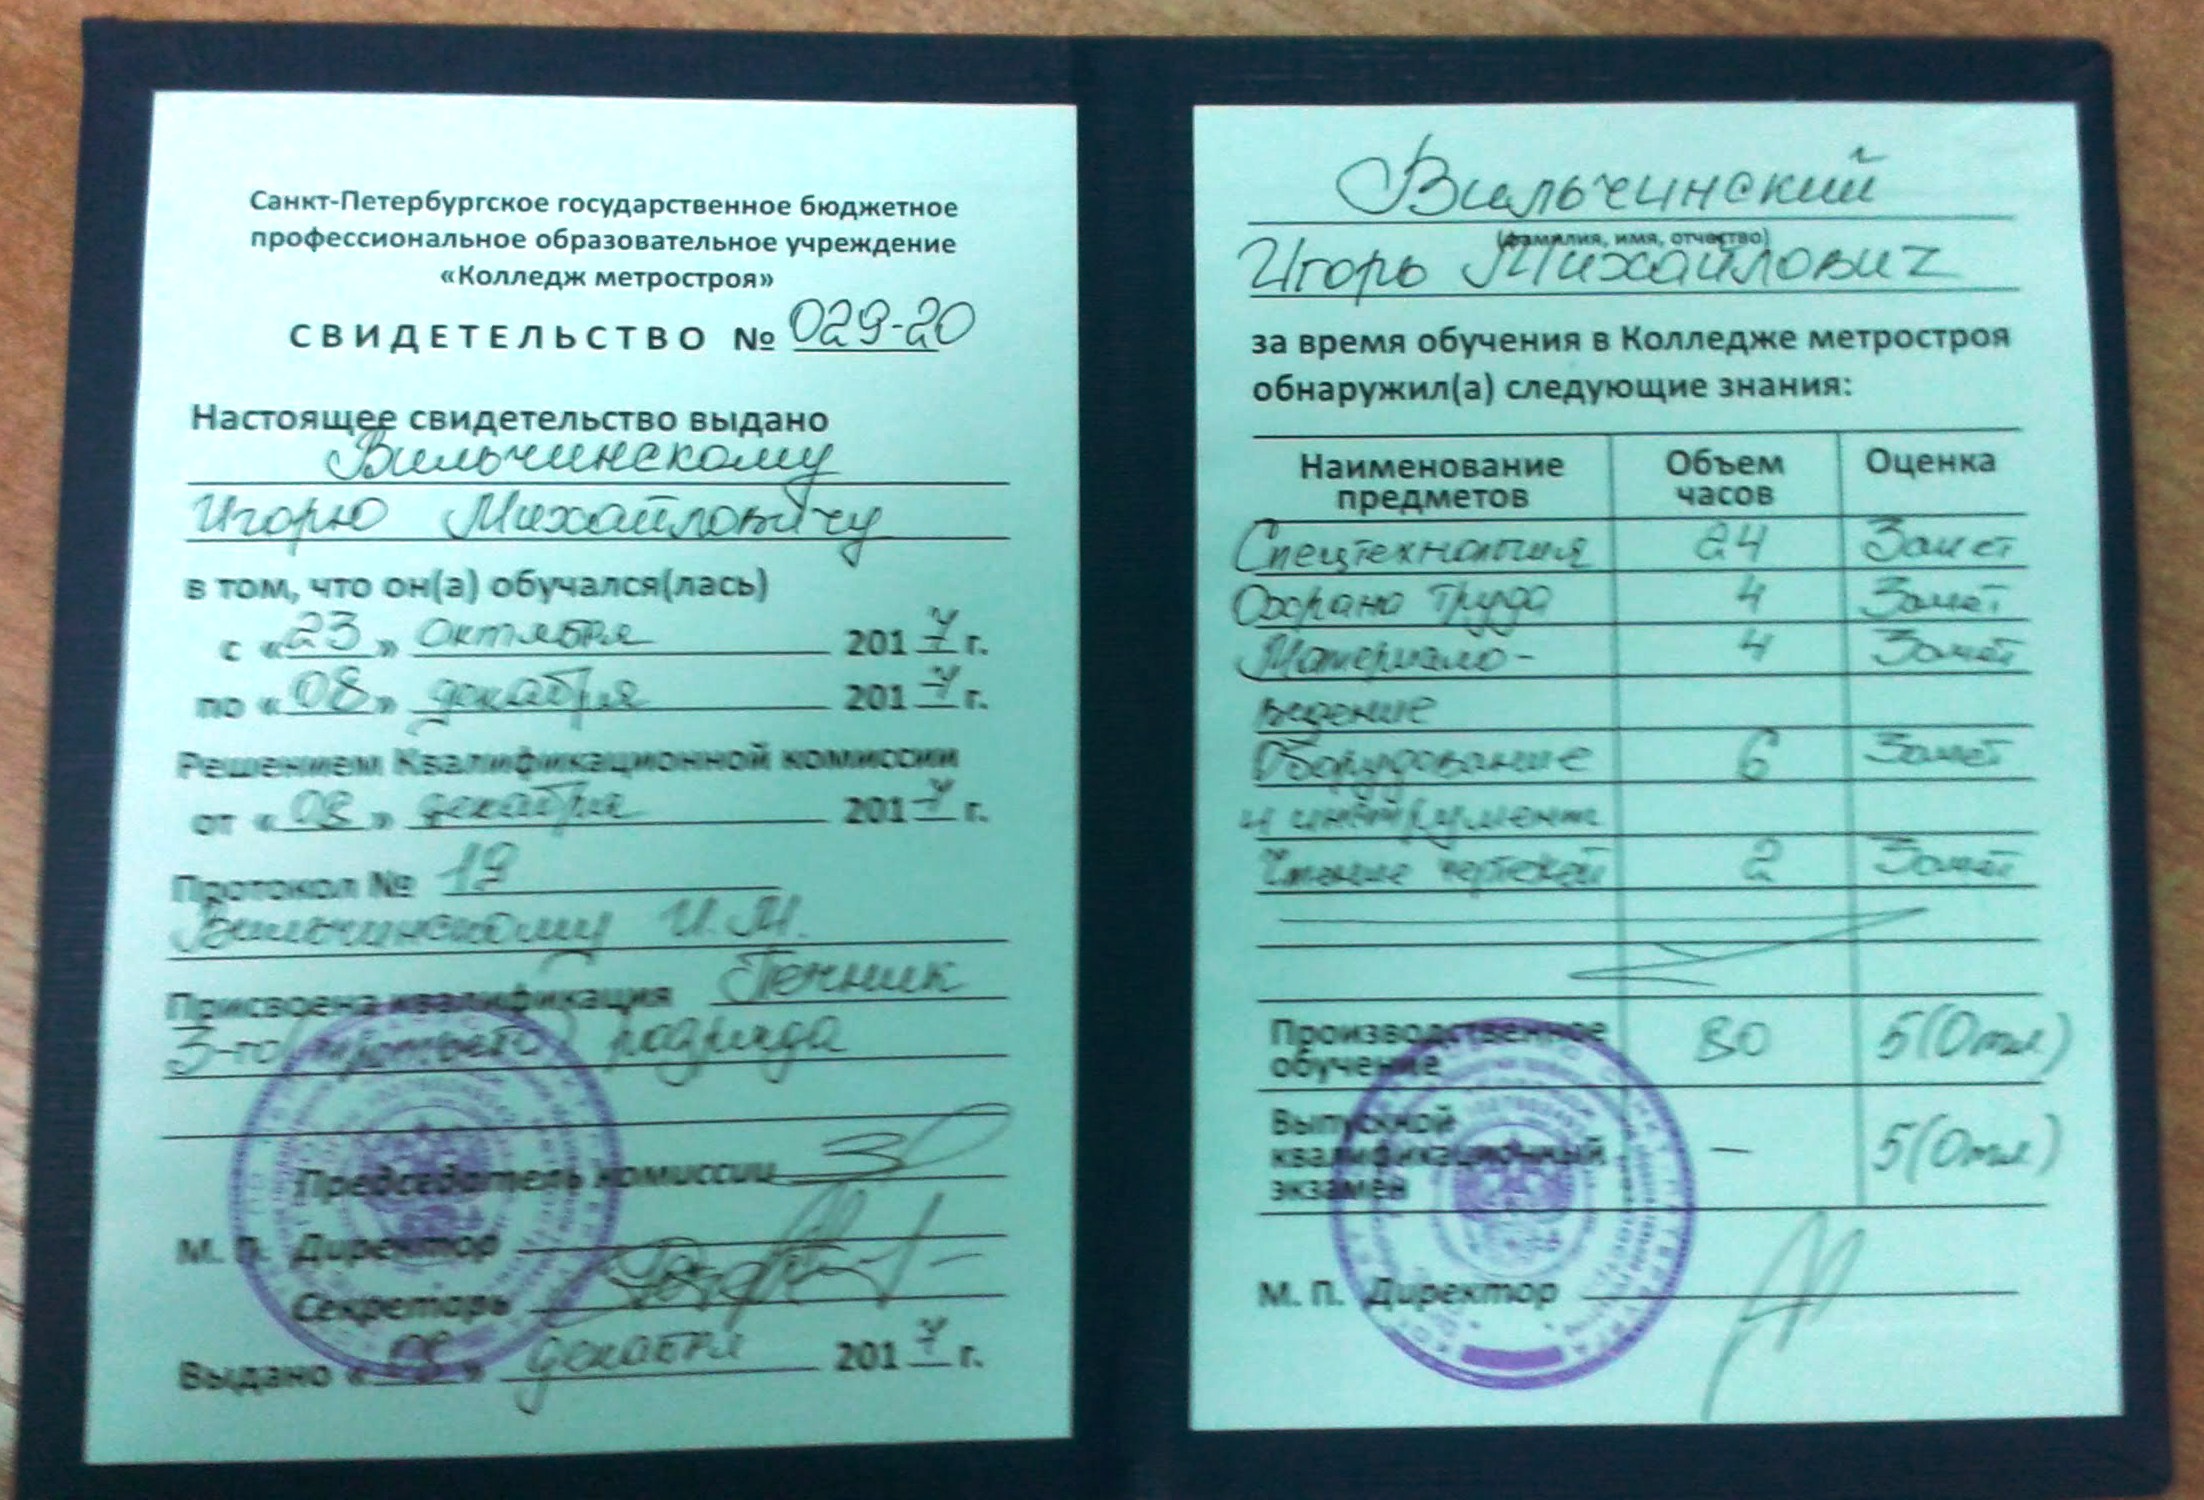 Санкт-Петербургское государственное бюджетное
профессиональное образовательное учреждение
«Колледж метростроя»
СВИДЕТЕЛЬСТВО № 029-20
Настоящее свидетельство выдано
Вильчинскому
Игорю Михайловичу
в том, что он(а) обучался(лась)
с «23» октября 2017 г.
по «08» декабря 2017 г.
Решением Квалификационной комиссии
от «08» декабря 2017 г.
Протокол № 19
Вильчинскому И.М.
Присвоена квалификация Печник
3-го (третьего) разряда
Председатель комиссии
М. П. Директор
Секретарь
Выдано «08» декабря 2017 г.
Вильчинский
(фамилия, имя, отчество)
Игорь Михайлович
за время обучения в Колледже метростроя
обнаружил(а) следующие знания:
Наименование предметов Объем часов Оценка
Спецтехнология 24 Зачет
Охрана труда 4 Зачет
Материало- 4 Зачет
ведение
Оборудование 6 Зачет
и инструменты
Чтение чертежей 2 Зачет
Производственное обучение 80 5(Отл)
Выпускной квалификационный экзамен — 5(Отл)
М. П. Директор